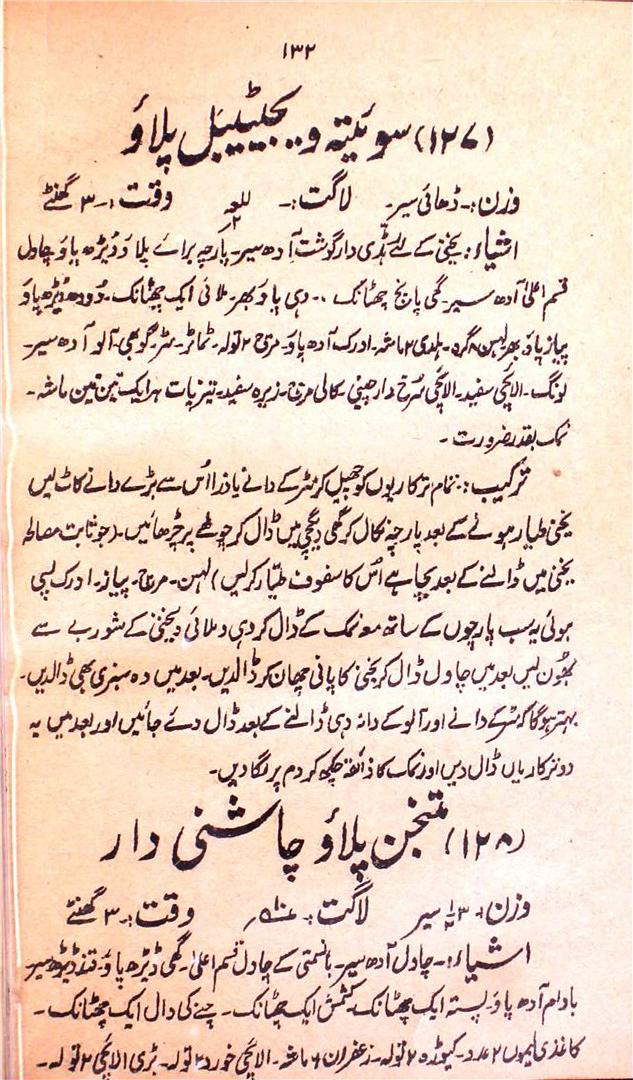 ۱۳۲
(۱۲۷) سوئیتہ ویجیٹیبل پلاؤ
وزن:۔ ڈھائی سیر۔ لاگت:۔ وقت:۔ ۳ گھنٹے
اشیاء:۔ یخنی کے لئے ہڈی دار گوشت آدھ سیر۔ پارچہ برائے پلاؤ ڈیڑھ پاؤ چاول
قسم اعلیٰ آدھ سیر۔ گھی پانچ چھٹانک۔ دہی پاؤ بھر۔ ملائی ایک چھٹانک۔ دودھ ڈیڑھ پاؤ
پیاز پاؤ بھر لہسن ۲ گرہ۔ ہلدی ۲ ماشہ۔ ادرک آدھ پاؤ۔ مرچ ۲ تولہ۔ ٹماٹر۔ مٹر۔ گوبھی۔ آلو آدھ سیر۔
لونگ۔ الائچی سفید۔ الائچی سُرخ دارچینی۔ کالی مرچ۔ زیرہ سفید۔ تیزپات ہر ایک تین تین ماشہ۔
نمک بقدر ضرورت۔
ترکیب:۔ تمام ترکاریوں کو چھیل کر مٹر کے دانے یا ذرا اُس سے بڑے دانے کاٹ لیں
یخنی طیار ہونے کے بعد پارچہ نکال کر گھی دیگچی میں ڈال کر چولھے پر چڑھائیں۔ (جو ثابت مصالحہ
یخنی میں ڈالنے کے بعد بچا ہے اُس کا سفوف طیّار کرلیں) لہسن۔ مرچ۔ پیاز۔ ادرک پسی
ہوئی یہ سب پارچوں کے ساتھ معہ نمک کے ڈال کر دہی و ملائی و یخنی کے شوربے سے
بھُون لیں بعد میں چاول ڈال کر یخنی کا پانی چھان کر ڈالدیں۔ بعد میں وہ سبزی بھی ڈالیں۔
بہتر ہوگا کہ مٹر کے دانے اور آلو کے دانہ دہی ڈالنے کے بعد ڈال دئے جائیں اور بعد میں یہ
دو ترکاریاں ڈال دیں اور نمک کا ذائقہ چکھ کر دم پر لگا دیں۔
(۱۲۸) متنجن پلاؤ چاشنی دار
وزن:۔ ۳½ سیر لاگت:۔ وقت:۔ ۳ گھنٹے
اشیاء:۔ چاول آدھ سیر۔ باسمتی کے چاول قسم اعلیٰ۔ گھی ڈیڑھ پاؤ۔ قند ڈیڑھ سیر
بادام آدھ پاؤ۔ پستہ ایک چھٹانک۔ کشمش ایک چھٹانک۔ چنے کی دال ایک چھٹانک۔
کاغذی لیموں ۲ عدد۔ کیوڑہ ۲ تولہ۔ زعفران ۶ ماشہ۔ الائچی خورد ۲ تولہ۔ بڑی الائچی ۲ تولہ۔